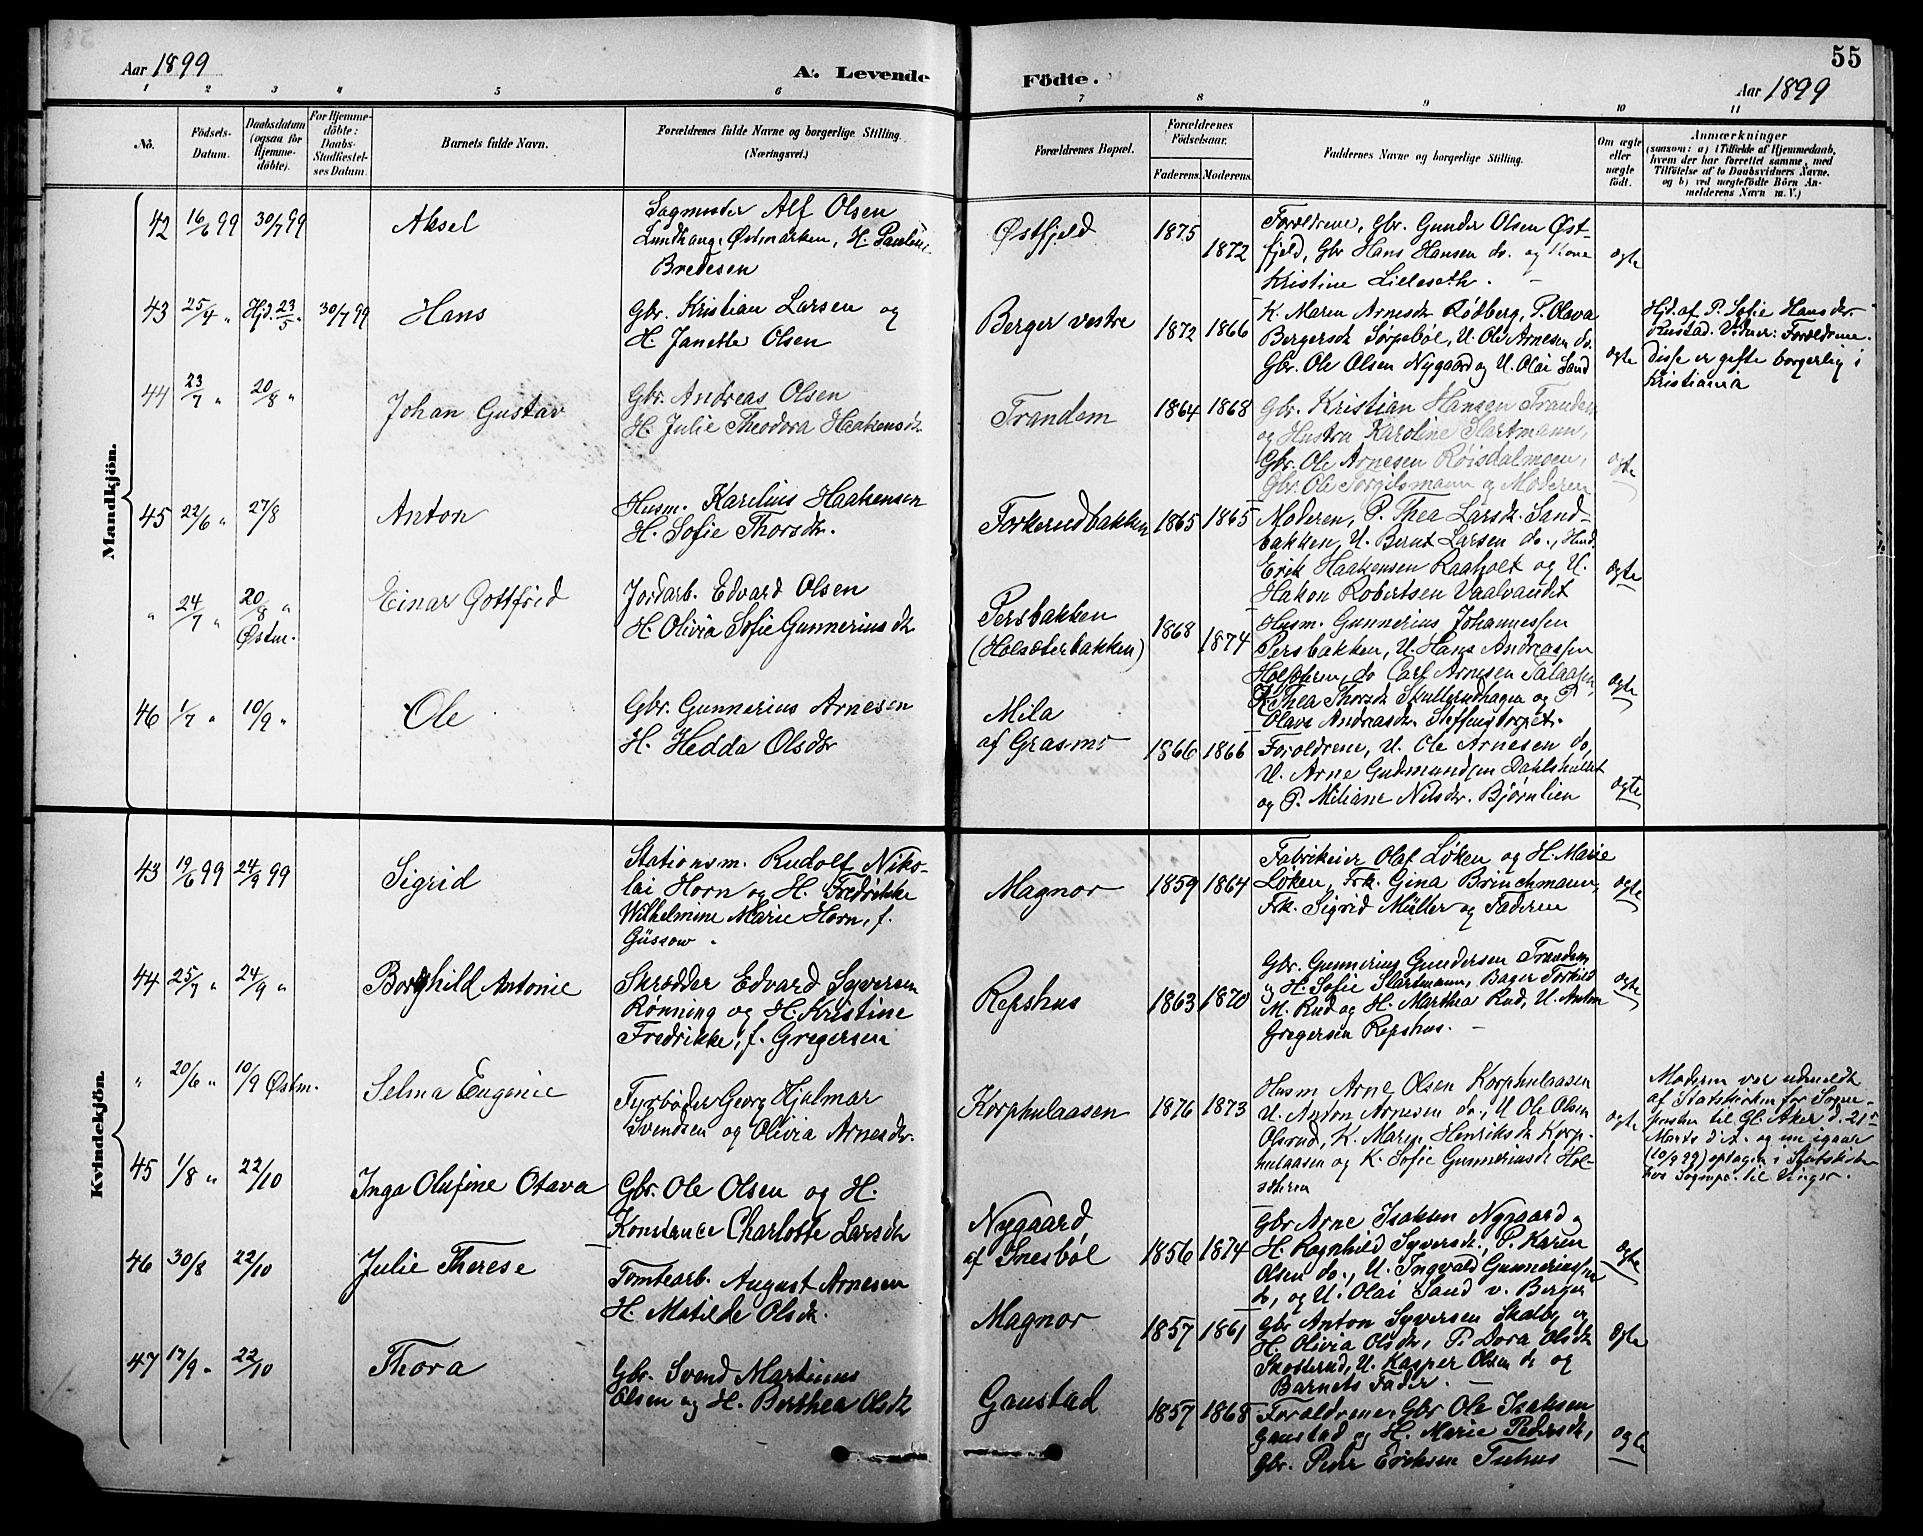 Aar 1899
A. Levende
Födte.
55
Aar 1899
1 2 3 4 5 6 7 8 9 10 11
No.
Födsels-
Datum.
Daabsdatum
(ogsaa for
Hjemme-
döbte).
For Hjemme-
döbte:
Daabs-
Stadfæstel-
ses Datum.
Barnets fulde Navn.
Forældrenes fulde Navne og borgerlige Stilling.
(Næringsvei.)
Forældrenes Bopæl.
Forældrenes
Födselsaar.
Faderens.
Moderens.
Faddernes Navne og borgerlige Stilling.
Om ægte
eller
uægte
födt.
Anmærkninger
(saasom: a) i Tilfælde af Hjemmedaab,
hvem der har forrettet samme, med
Tilföielse af to Daabsvidners Navne.
og b) ved uægtefödte Börn An-
melderens Navn m. V.)
Mandkjön.
42 16/6 99 30/7 99
Aksel
Sagmester Alf Olsen
Lundhaug, Østmarken, H. Pauline
Bredesen
Østfjeld
1875 1872
Foreldrene, Gbr. Gunder Olsen Øst-
fjeld, Gbr Hans Hansen do. og Kone
Kristine Lilleseth. –
ægte
43 25/4 " Hjd. 23/5 " 30/7 99
Hans
Gbr. Kristian Larsen og
H. Janette Olsen
Berger vestre
1872 1866
K. Maren Arnesdr Rødberg, P. Olava
Bergersdr Sørpebøl, U. Ole Arnesen do.
Gbr. Ole Olsen Nygaard og U. Olai Sand
ægte
Hjd. af P. Sofie Hansdr
Rustad. Vidner: Foreldrene.
disse er gifte borgerlig i
Kristiania
44 23/7 " 20/8 "
Johan Gustav
Gbr. Andreas Olsen
H. Julie Theodora Haakensdr.
Trandem
1864 1868
Gbr. Kristian Hansen Trandem
og Hustru Karoline Slartmann,
Gbr. Ole Arnesen Røisdalmoen,
Gbr. Ole Torgilsmann og Moderen
ægte
45 22/6 " 27/8
Anton
Husm. Karelius Haakensen
H. Sofie Thorsdr.
Forkerudbakken
1865 1865
Moderen, P. Thea Larsdr. Sand-
bakken, U. Bernt Larsen do., Husm.
Erik Haakensen Raaholt og U.
Hakon Robertsen Vaalvandet
ægte
" 24/7 " 20/8 " Østm.
Einar Gottfred
Jordarb. Edvard Olsen
H. Olivia Sofie Gunneriusdr
Persbakken
(Holsæterbakken)
1868 1874
Husm. Gunnerius Johannessen
Persbakken, U. Hans Andreassen
Holsæteren, do Carl Arnesen Talaasen,
K. Thea Thorsdr Skullerudhagen og P
Olava Andreasdr. Steffenstorpet.
ægte
46 1/7 " 10/9 "
Ole
Gbr. Gunnerius Arnesen
H. Hedda Olsdr
Mila
af Grasmo
1866 1866
Foreldrene, U. Ole Arnesen do,
U. Arne Gudmundsen Dahlshullet
og P. Miliane Nilsdr. Bjørnlien
ægte
Kvindekjön.
43 19/6 99 24/9 99
Sigrid
Stationsm. Rudolf Niko-
lai Horn og H. Fredrikke
Wilhelmine Marie Horn, f.
Güssow
Magnor
1859 1864
Fabrikeier Olaf Løken og H. Marie
Løken, Frk. Gina Brinchmann,
Frk. Sigrid Müller og Faderen
ægte
44 25/7 " 24/9 "
Borghild Antonie
Skrædder Edvard Syversen
Rønning og H. Kristine
Fredrikke, f. Gregersen
Repshus
1863 1870
Gbr. Gunnerius Gundersen Trandem
og H. Sofie Slartmann, Bager Torkild
M. Rud og H. Marthea Rud, U. Anton
Gregersen Repshus. –
ægte
" 20/6 " 10/9 Østm.
Selma Eugenie
Fyrbøder Georg Hjalmar
Svendsen og Olivia Arnesdr.
Korphulaasen
1876 1873
Husm Arne Olsen Korphulaasen
U. Anton Arnesen do., U Ole Olsen
Olsrud, K. Maren Henriksdr Korp-
hulaasen og K. Sofie Gunneriusdr Hol-
sæteren
ægte
Moderen var udmeldt
af Statskirken for Sogne-
presten til Gl. Aker d. 21de
Marts d. A. og un igaar
(10/9 99) optagen i Statskirken
hos Sognepr. til Vinger.
45 1/8 " 22/10
Inga Olufine Otava
Gbr. Ole Olsen og H.
Konstance Charlotte Larsdr
Nygaard
af Snesbøl
1856 1874
Gbr Arne Isaksen Nygaard og
H. Ragnhild Syversdr., P. Karen
Olsen do., U. Ingvald Gunneriussen
do, og U. Olai Sand v. Berger
ægte
46 30/8 22/10
Julie Therese
Tomtearb. August Arnesen
H. Matilde Olsdr.
Magnor
1857 1861
Gbr Anton Syversen Skalby og
H. Olivia Olsdr, P. Dora Olsdr
Skosterud, U. Kasper Olsen do og
Barnets Fader. –
ægte
47 17/9 " 22/10
Thora
Gbr. Svend Martinus
Olsen og H. Berthea Olsdr
Gaustad
1857 1868
Foreldrene, Gbr Ole Isaksen
Gaustad og H. Marie Pedersdr,
Gbr. Peder Eriksen Tuhus
ægte